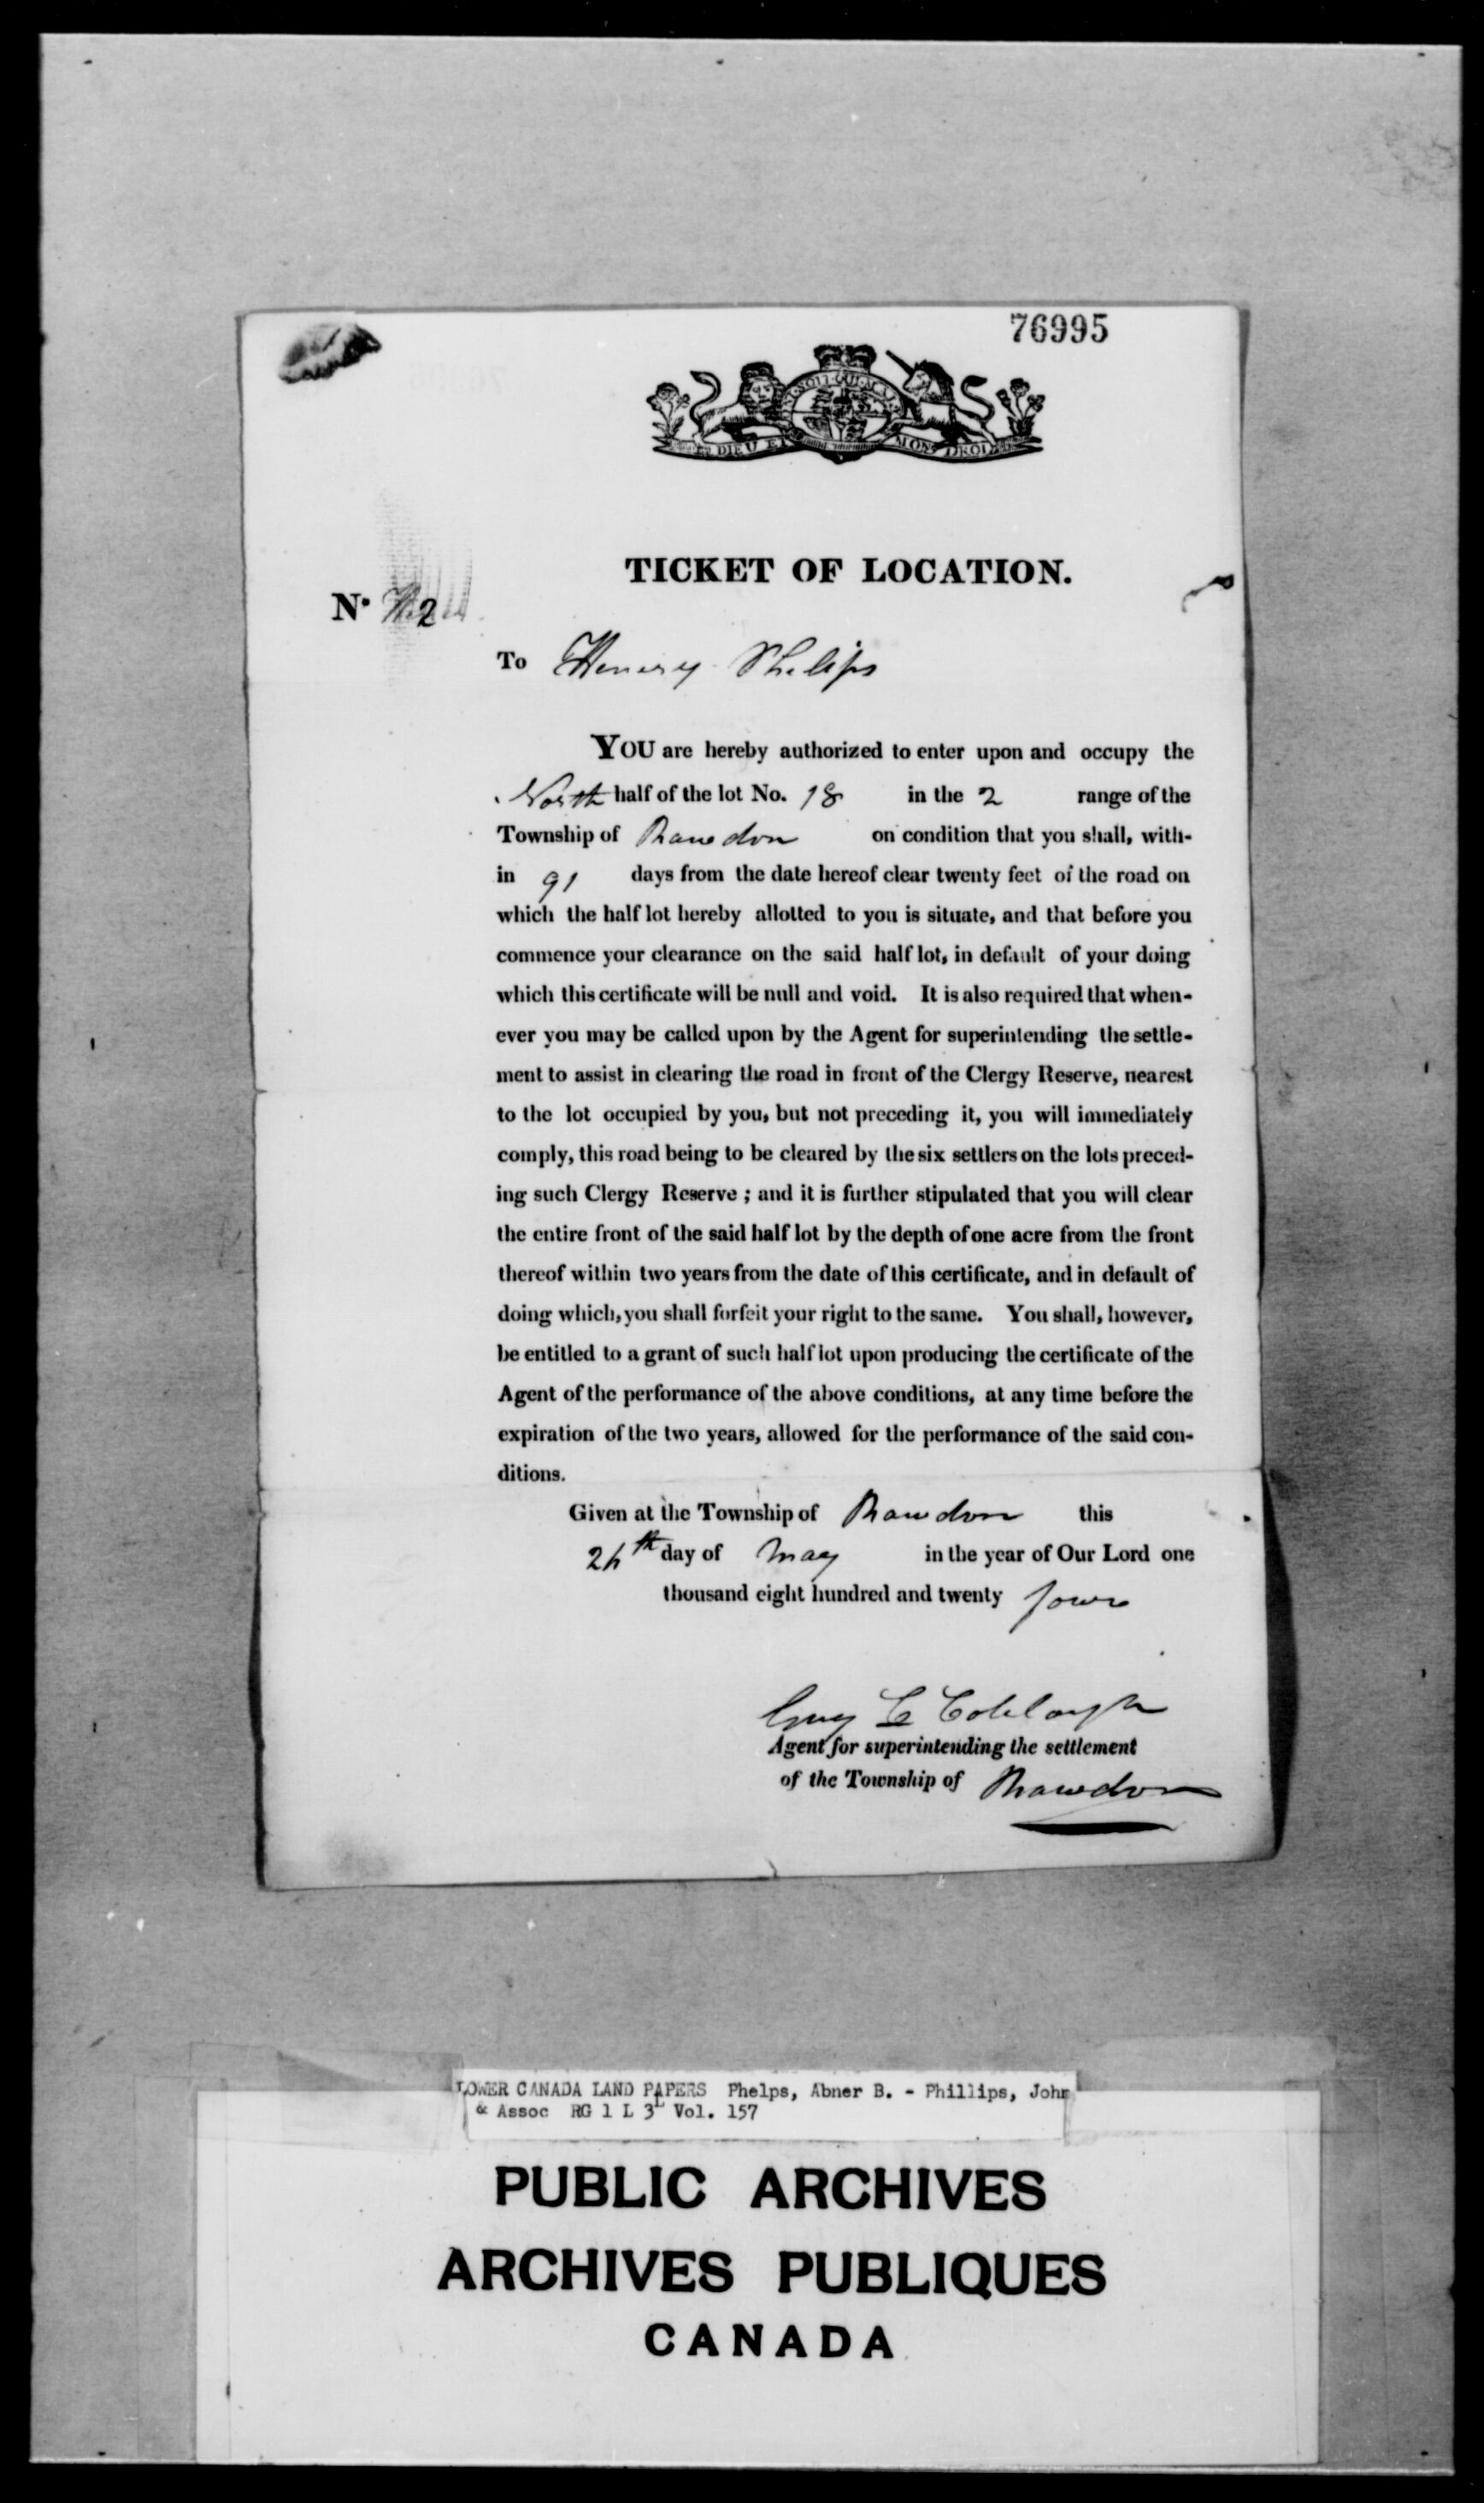 76995
DIEU ET MON DROIT
TICKET OF LOCATION.
No. 2
To Henery Phelips
YOU are hereby authorized to enter upon and occupy the
North half of the lot No. 18 in the 2 range of the
Township of Rawdon on condition that you shall, with-
in 91 days from the date hereof clear twenty feet of the road on
which the half lot hereby allotted to you is situate, and that before you
commence your clearance on the said half lot, in default of your doing
which this certificate will be null and void. It is also required that when-
ever you may be called upon by the Agent for superintending the settle-
ment to assist in clearing the road in front of the Clergy Reserve, nearest
to the lot occupied by you, but not preceding it, you will immediately
comply, this road being to be cleared by the six settlers on the lots preced-
ing such Clergy Reserve ; and it is further stipulated that you will clear
the entire front of the said half lot by the depth of one acre from the front
thereof within two years from the date of this certificate, and in default of
doing which, you shall forfeit your right to the same. You shall, however,
be entitled to a grant of such half lot upon producing the certificate of the
Agent of the performance of the above conditions, at any time before the
expiration of the two years, allowed for the performance of the said con-
ditions.
Given at the Township of Rawdon this
th day of May in the year of Our Lord one
thousand eight hundred and twenty four
Guy C Colclough
Agent for superintending the settlement
of the Township of Rawdon
LOWER CANADA LAND PAPERS Phelps, Abner B. - Phillips, John
& Assoc RG 1 L 3L Vol. 157
PUBLIC ARCHIVES
ARCHIVES PUBLIQUES
CANADA